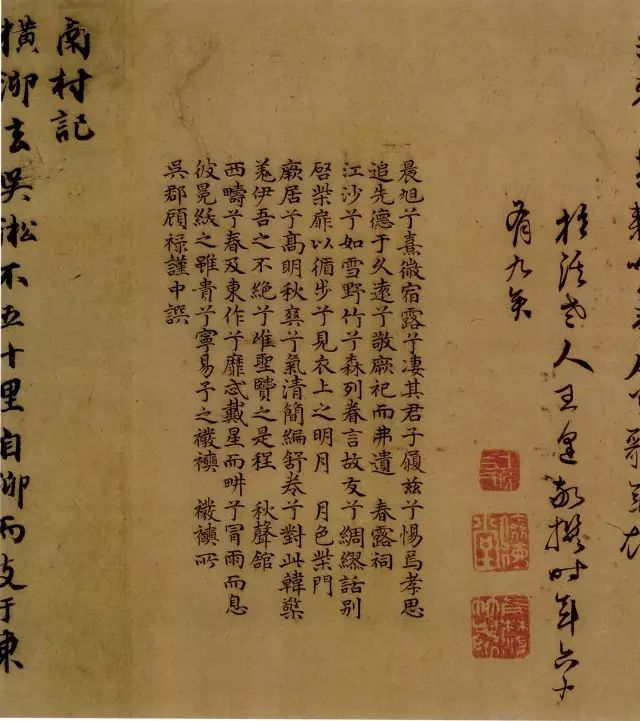 梧溪老人王逢敬撰時年六十
有九矣
晨旭兮熹微宿露兮凄其君子履茲兮惕焉孝思
追先德于久遠兮敬厥祀而弗遺 春露祠
江沙兮如雪野竹兮森列眷言故友兮綢繆話別
啓柴扉以循步兮見衣上之明月 月色柴門
厥居兮高明秋爽兮氣清簡編舒卷兮對此韓檠
羗伊吾之不絕兮唯聖賢之是程 秋聲館
西疇兮春及東作兮靡忒戴星而畊兮冒雨而息
彼冕紱之雖貴兮寧易予之襏襫 襏襫所
吳郡顧祿謹中譔
南村記
橫泖去吳淞不五十里自泖而支于東